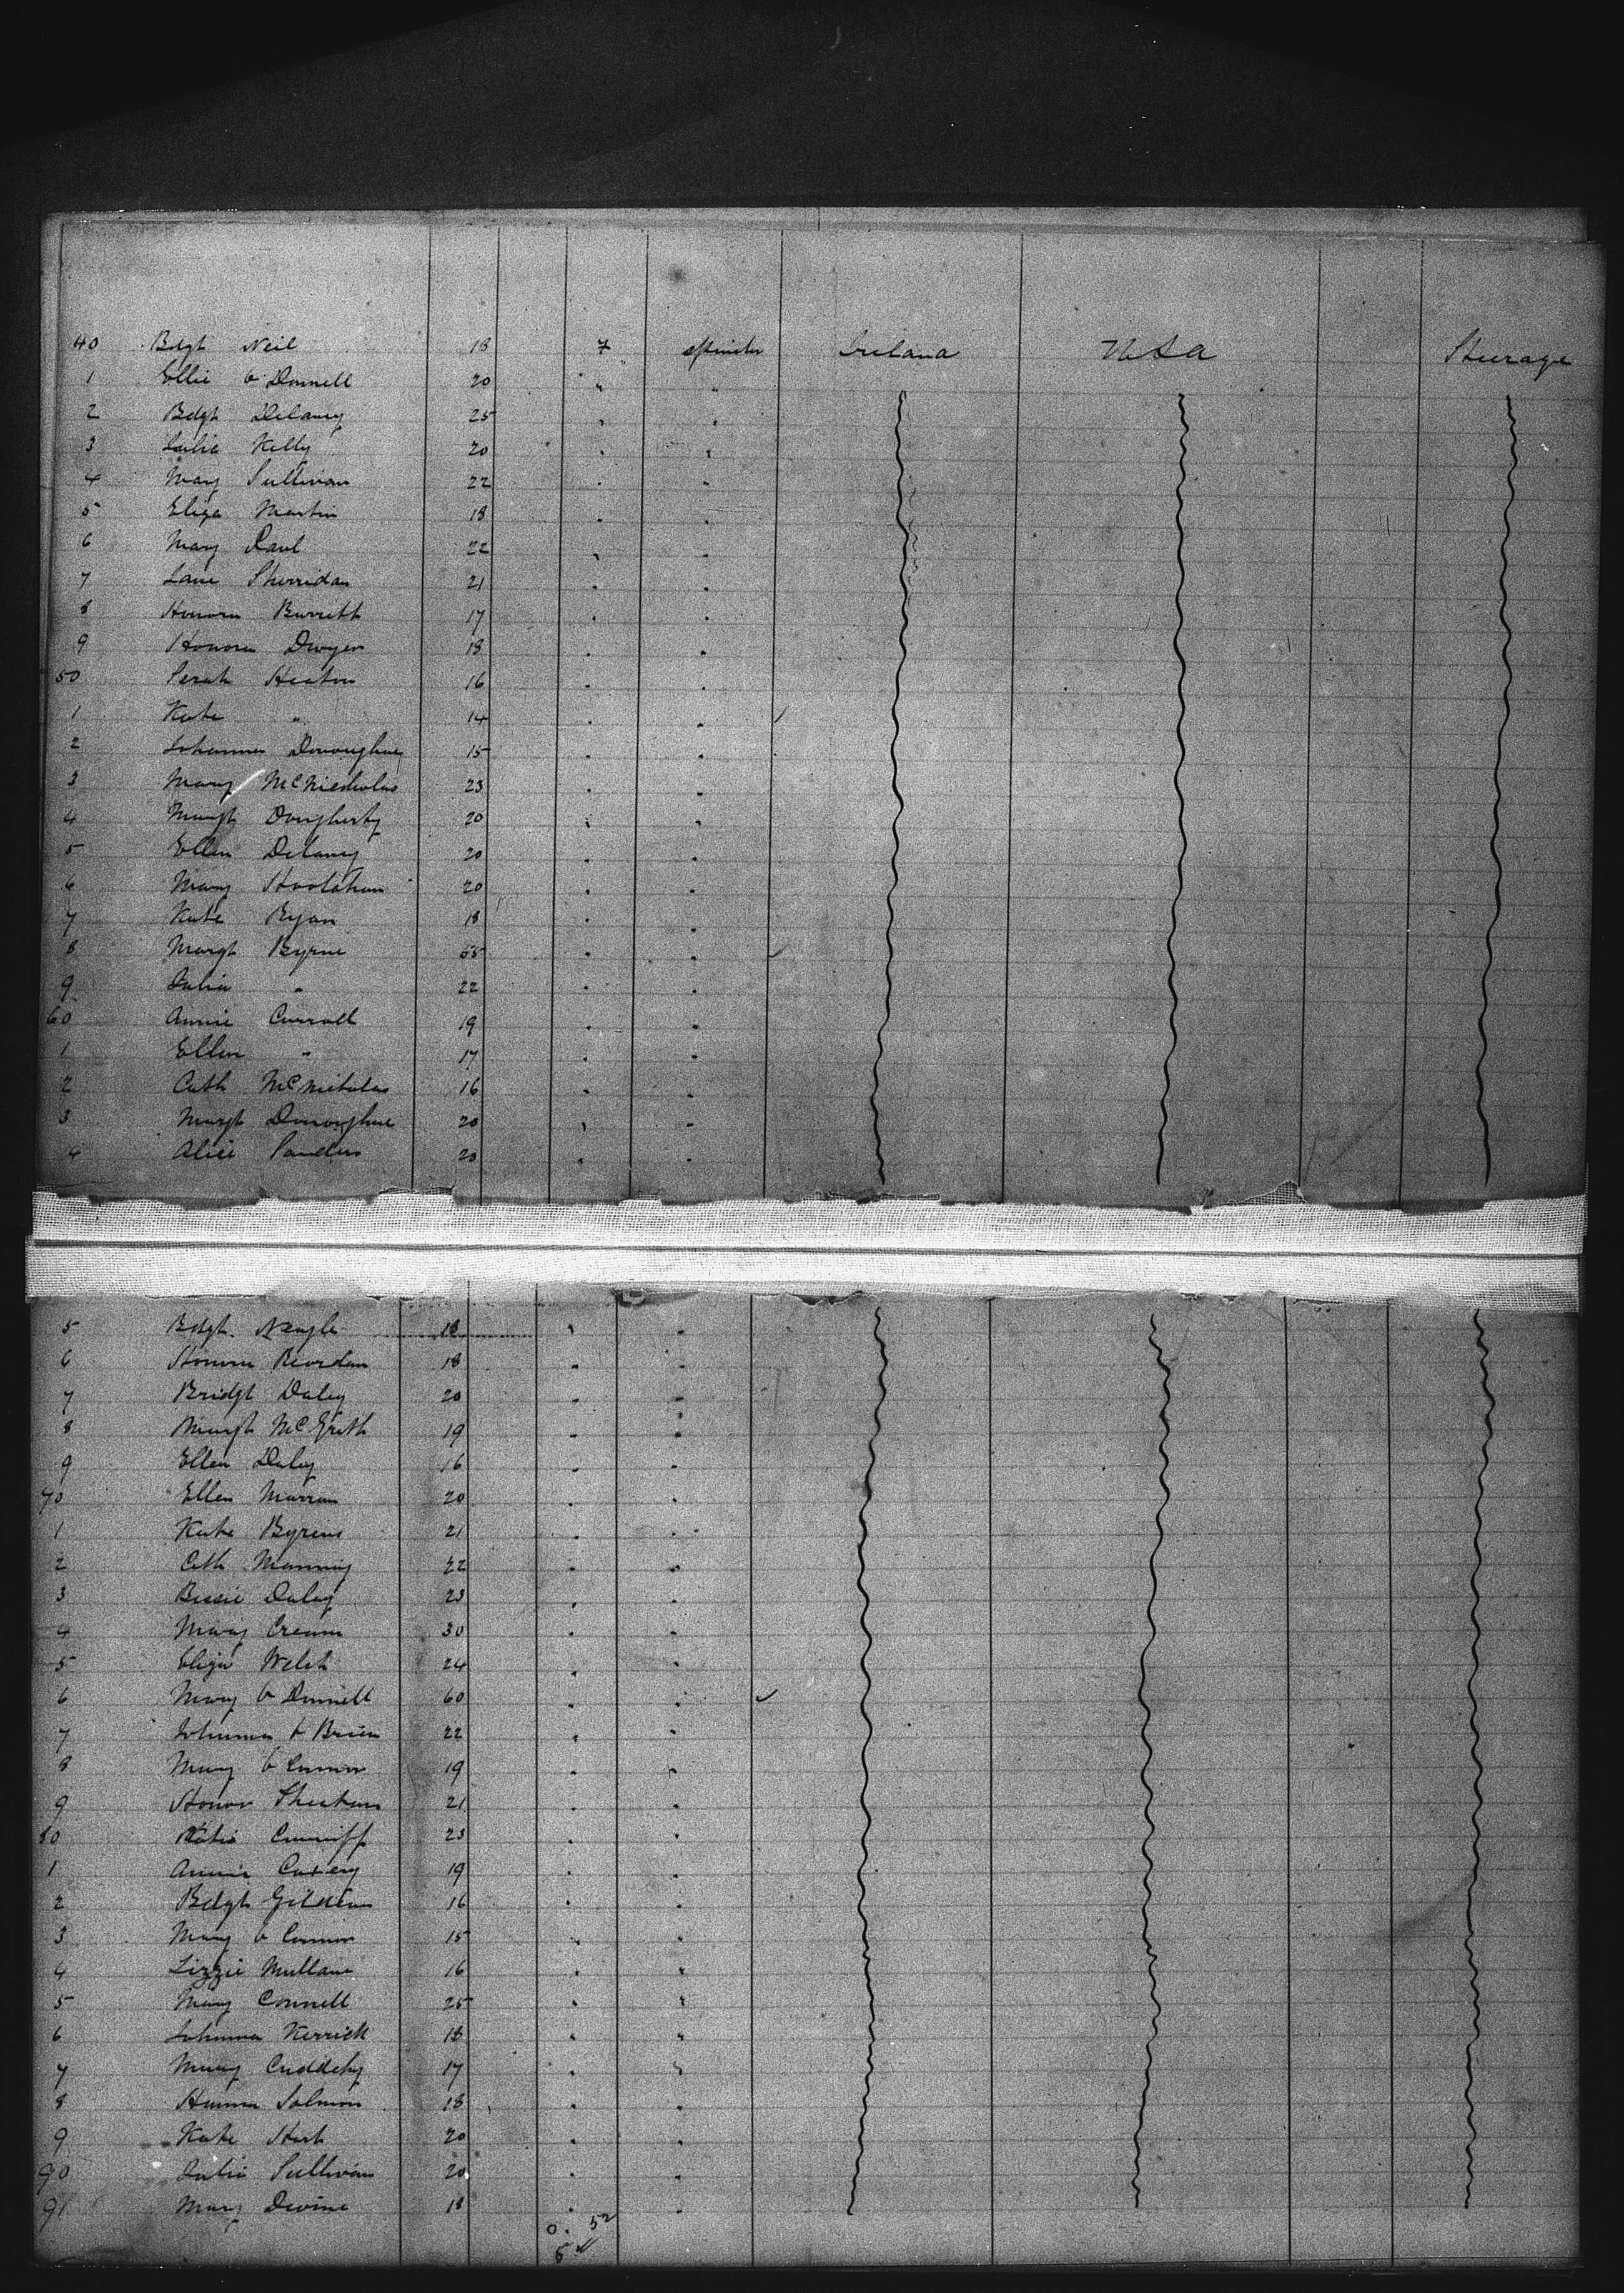 40 Bdgt Neil 18 7 spinster Ireland USA Steerage
1 Ellie O'Donnell 20 " "
2 Bdgt Delaney 25 " "
3 Julia Kelly 20 " "
4 Mary Sullivan 22 " "
5 Eliza Martin 18 " "
6 Mary Paul 22 " "
7 Jane Sherridan 21 " "
8 Honora Barrett 17 " "
9 Honora Dwyer 18 " "
50 Serah Heaton 16 " "
1 Kate " 14 " "
2 Johanna Donoughue 15 " "
3 Mary McNiecholas 23 " "
4 Margt Dougherty 20 " "
5 Ellen Delaney 20 " "
6 Mary Hoolahan 20 " "
7 Kate Ryan 18 " "
8 Margt Byrne 65 " "
9 Julia " 22 " "
60 Annie Carroll 19 " "
1 Ellen " 17 " "
2 Cath McNicholas 16 " "
3 Margt Donoughue 20 " "
4 Alice Sanders 20 " "
5 Bdgt Nangle 18 " "
6 Honora Reordan 18 " "
7 Bridgt Daley 20 " "
8 Margt McGrath 19 " "
9 Ellen Daley 16 " "
70 Ellen Marran 20 " "
1 Kate Byrens 21 " "
2 Cath Manning 22 " "
3 Bessie Daley 23 " "
4 Mary 30 " "
5 Eliza Welsh 24 " "
6 Mary O'Donnell 60 " "
7 Johanna O'Brien 22 " "
8 Mary O'Connor 19 " "
9 Honor Sheehan 21 " "
80 Katie Cunniff 23 " "
1 Annie Casey 19 " "
2 Bdgt 16 " "
3 Mary O'Connor 15 " "
4 Lizzie Mullane 16 " "
5 Mary Connell 25 " "
6 Johanna Kerrick 18 " "
7 Mary Cuddehy 17 " "
8 Hanna Salmon 18 " "
9 Kate Hart 20 " "
90 Julia Sullivan 20 " "
91 Mary Devine 18 " "
0. 52